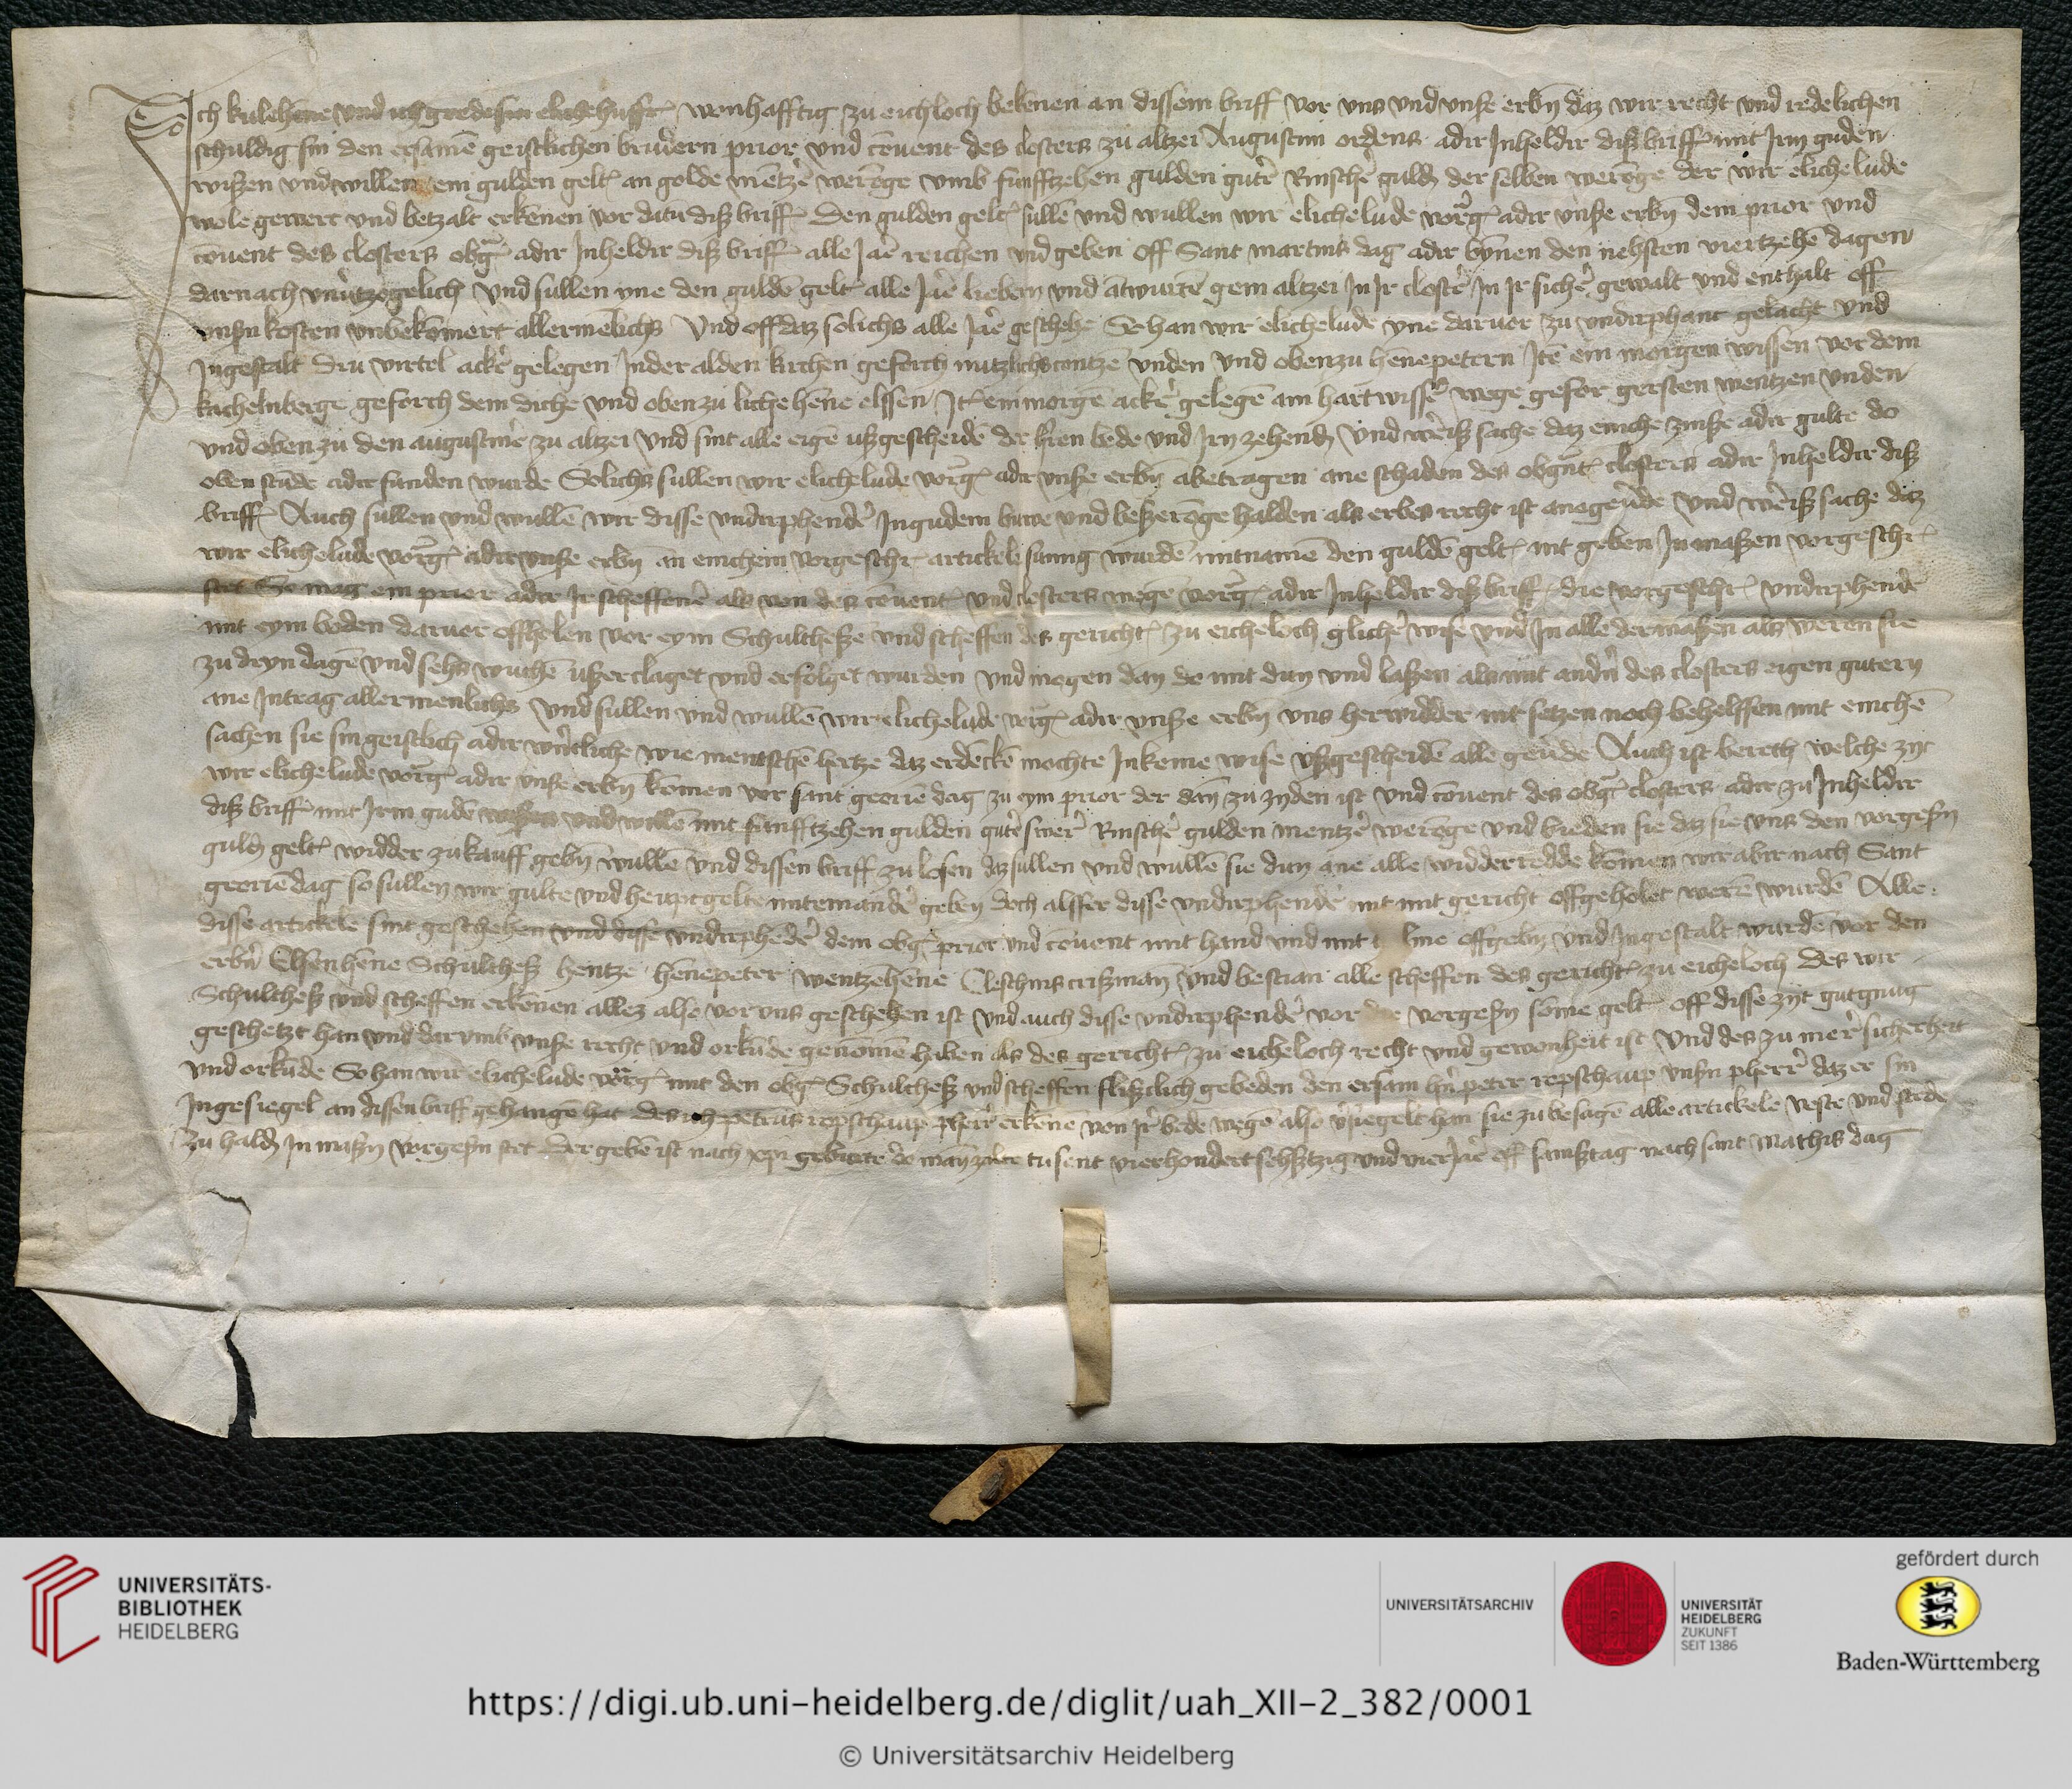 Ich kulehēne und ich grede sin eliche husfr. wonhafftig zu eichloch bekēnen an dissem briff vor uns und unße erbn̄ daz wir recht und redelichen
schuldig sin den ersamē geistlichen brudern prior und cōvent des closters zu altzei Augustini ordens adir Inheldir diß briffß mit Irm guden
wißen und willen ein gulden gelt an golde mentzer werōge umb funfftzehen gulden guter Rinscher guld der selben werōge der wir eliche lude
wole gewert und betzalt erkēnen vor datu diß briffß Den gulden gelt sullē und wullen wir eliche lude vorg. adir unße erbn̄ dem prior und
cōvent des closters obg. adir Inheldir diß briffß alle Jar reichen und geben off Sant martins dag adir bynen den nehsten viertzehē dagen
darnach unvertzogelich und sullen yne den guldē gelt alle Jar liebern und ātwurtē gein altzei In Ir closter In Ir sicher gewalt und enthalt off
unßn kosten unbekomert allermēlichs Und off daz solichs alle Jar geschehe So han wir eliche lude yne darvor zu undirphant gelacht und
Ingestalt dru virtel acker gelegen In der alden kirchen geforch unden und oben zu henepetern Itē ein morgen wissen vor dem
kachelnberge geforch dem diche und oben zu liche hēne elssen It. ein morgē acker gelegē am hartwisser wege gefor gersten wentzen unden
und oben zu den augustiner zu altzei und sint alle eigē ußgescheidē der bede und Irn zehend Und wer iß sache daz eniche zinße adir gulte do
oben stūde adir funden wurde Solichs sullen wir eliche lude vorg. adir unße erbn̄ abetragen ane schaden des obgnt. closters adir Inheldir diß
briffß Auch sullen und wullē wir disse undirphender In gudem buwe und beßerōge halden als erbes recht ist anegeverde Und wer iß sache daz
wir eliche lude vorg. adir unße erbn̄ an enichem vorgeschr. artickele sumig wurdē mitnamē den guldē gelt nit geben In maßen vorgeschr.
stet So mag ein prior adir Ir scheffener als von des cōvent und closters wegē vorg. adir Inheldir diß briff die vorgeschr. undirphender
mit eym boden darvor offholen vor eym Schultheße und scheffen des gericht zu eicheloch glicher wise und In alle dermaßen als weren sie
zu dryn dagē und sehs wuchē ußerclaget und erfolget wurden und mogen dan do mit dun und laßen als mit andn̄ des closters eigen gutern
ane Intrag allermenlichs Und sullen und wullē wir eliche lude vorg. adir unße erbn̄ uns herwidder nit setzen noch behelffen mit enichē
sachen sie sin geistlich adir werntliche wie mentschē hertze daz erdenckē mochte In keine wise ußgescheidē alle geverde Auch ist bereth welche zyt
wir eliche lude vorg. adir unße erbn̄ komen vor sant georiē dag zu eym prior der dan zu zyden ist und cōvent des obg. closters adir zu Inheldir
diß briffß mit Irm gudē wißen und willē mit funfftzehen gulden guter swer Rinscher gulden mentzer werōge und bieden sie daz sie uns den vorgeßn
guld gelt widder zu kauff gebn̄ wullē und dissen briff zu losen daz sullen und wullē sie dun ane alle widderredde komen wir abir nach Sant
georiē dag so sullen wir gulte und heuptgelt mitemander geben doch alsfer disse undirphender nit mit gericht offgeholet werē wurdē Alle
disse artickele sint geschehen und disse undirphēder dem obg. prior und cōvent mit hand und mit offgebn̄ und Ingestalt wurdē vor den
erbn̄ Elsenhēne Schultheß hentze hēnepeter wentzehēne crißman und bestian alle scheffen des gericht zu eicheloch des wir
Schultheß und scheffen erkēnen allez also vor uns geschehen ist und auch disse undirphender vor die vorgeßn som̄e gelt off disse zyt gut gnug
geschetzt han und darumb unße recht und orkūde genomē haben als des gericht zu eicheloch recht und gewonheit ist Und des zu mer sicherheit
und orkūde So han wir eliche lude vorg. mit den obg. Schultheß und scheffen flißclich gebeden den ersam hn̄ peter repschaup unßn pherr daz er sin
Ingesiegel an dissen briff gehangē hat des ich petrus repschaup pherr erkēne von Ir bede wegē also versiegelt han sie zu besagē alle artickele veste und stede
zu hald In maßn vorgeßn stet Der gebē ist nach xpi geburte do man zalte tusent vierhondert sehßtzig und vier Jar off samßtag nach sant Mathis dag
UNIVERSITÄTS-
BIBLIOTHEK
HEIDELBERG
UNIVERSITÄTSARCHIV
UNIVERSITÄT
HEIDELBERG
ZUKUNFT
SEIT 1386
gefördert durch
Baden-Württemberg
https://digi.ub.uni-heidelberg.de/diglit/uah_XII-2_382/0001
© Universitätsarchiv Heidelberg